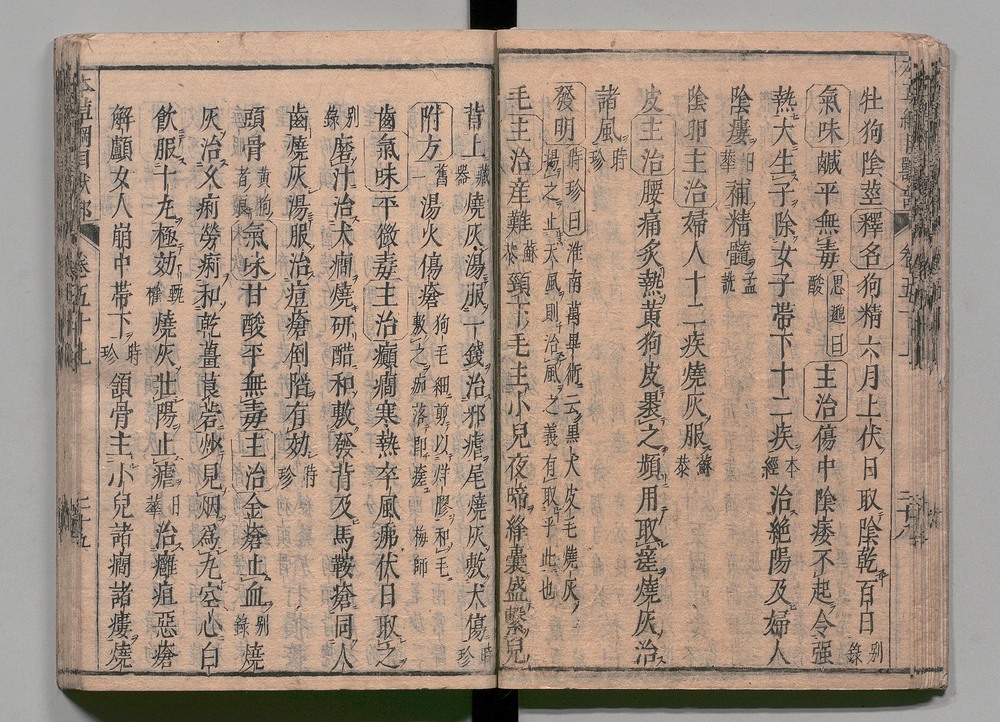 牡狗陰莖釋名狗精六月上伏日取陰乾百日别錄
氣味鹹平無毒思邈曰酸主治傷中陰痿不起令强
熱大生子除女子帶下十二疾本經治絶陽及婦人
陰痿日華補精髓孟詵
陰卵主治婦人十二疾燒灰服蘇恭
皮主治腰痛炙熱黄狗皮褁之頻用取瘥燒灰治
諸風時珍
發明時珍曰淮南萬畢術云黒犬皮毛燒灰揚之止天風則治風之義有取乎此也
毛主治産難蘇恭頸下毛主小兒夜啼絳囊盛繫兒
背上藏器燒灰湯服一錢治邪瘧尾燒灰敷犬傷時珍
附方舊一湯火傷瘡狗毛細剪以烊膠和毛敷之痂落即瘥梅師
齒氣味平微毒主治癲癇寒熱卒風痱伏日取之
别錄磨汁治犬癇燒研醋和敷發背及馬鞍瘡同人
齒燒灰湯服治痘瘡倒陷有効時珍
頭骨黄狗者良氣味甘酸平無毒主治金瘡止血别錄燒
灰治久痢勞痢和乾薑莨菪炒見烟爲丸空心白
飲服十丸極効甄權燒灰壯陽止瘧日華治癰疽惡瘡
解顱女人崩中帶下時珍頷骨主小兒諸癇諸瘻燒
本草綱目獸部
卷五十上
二十九